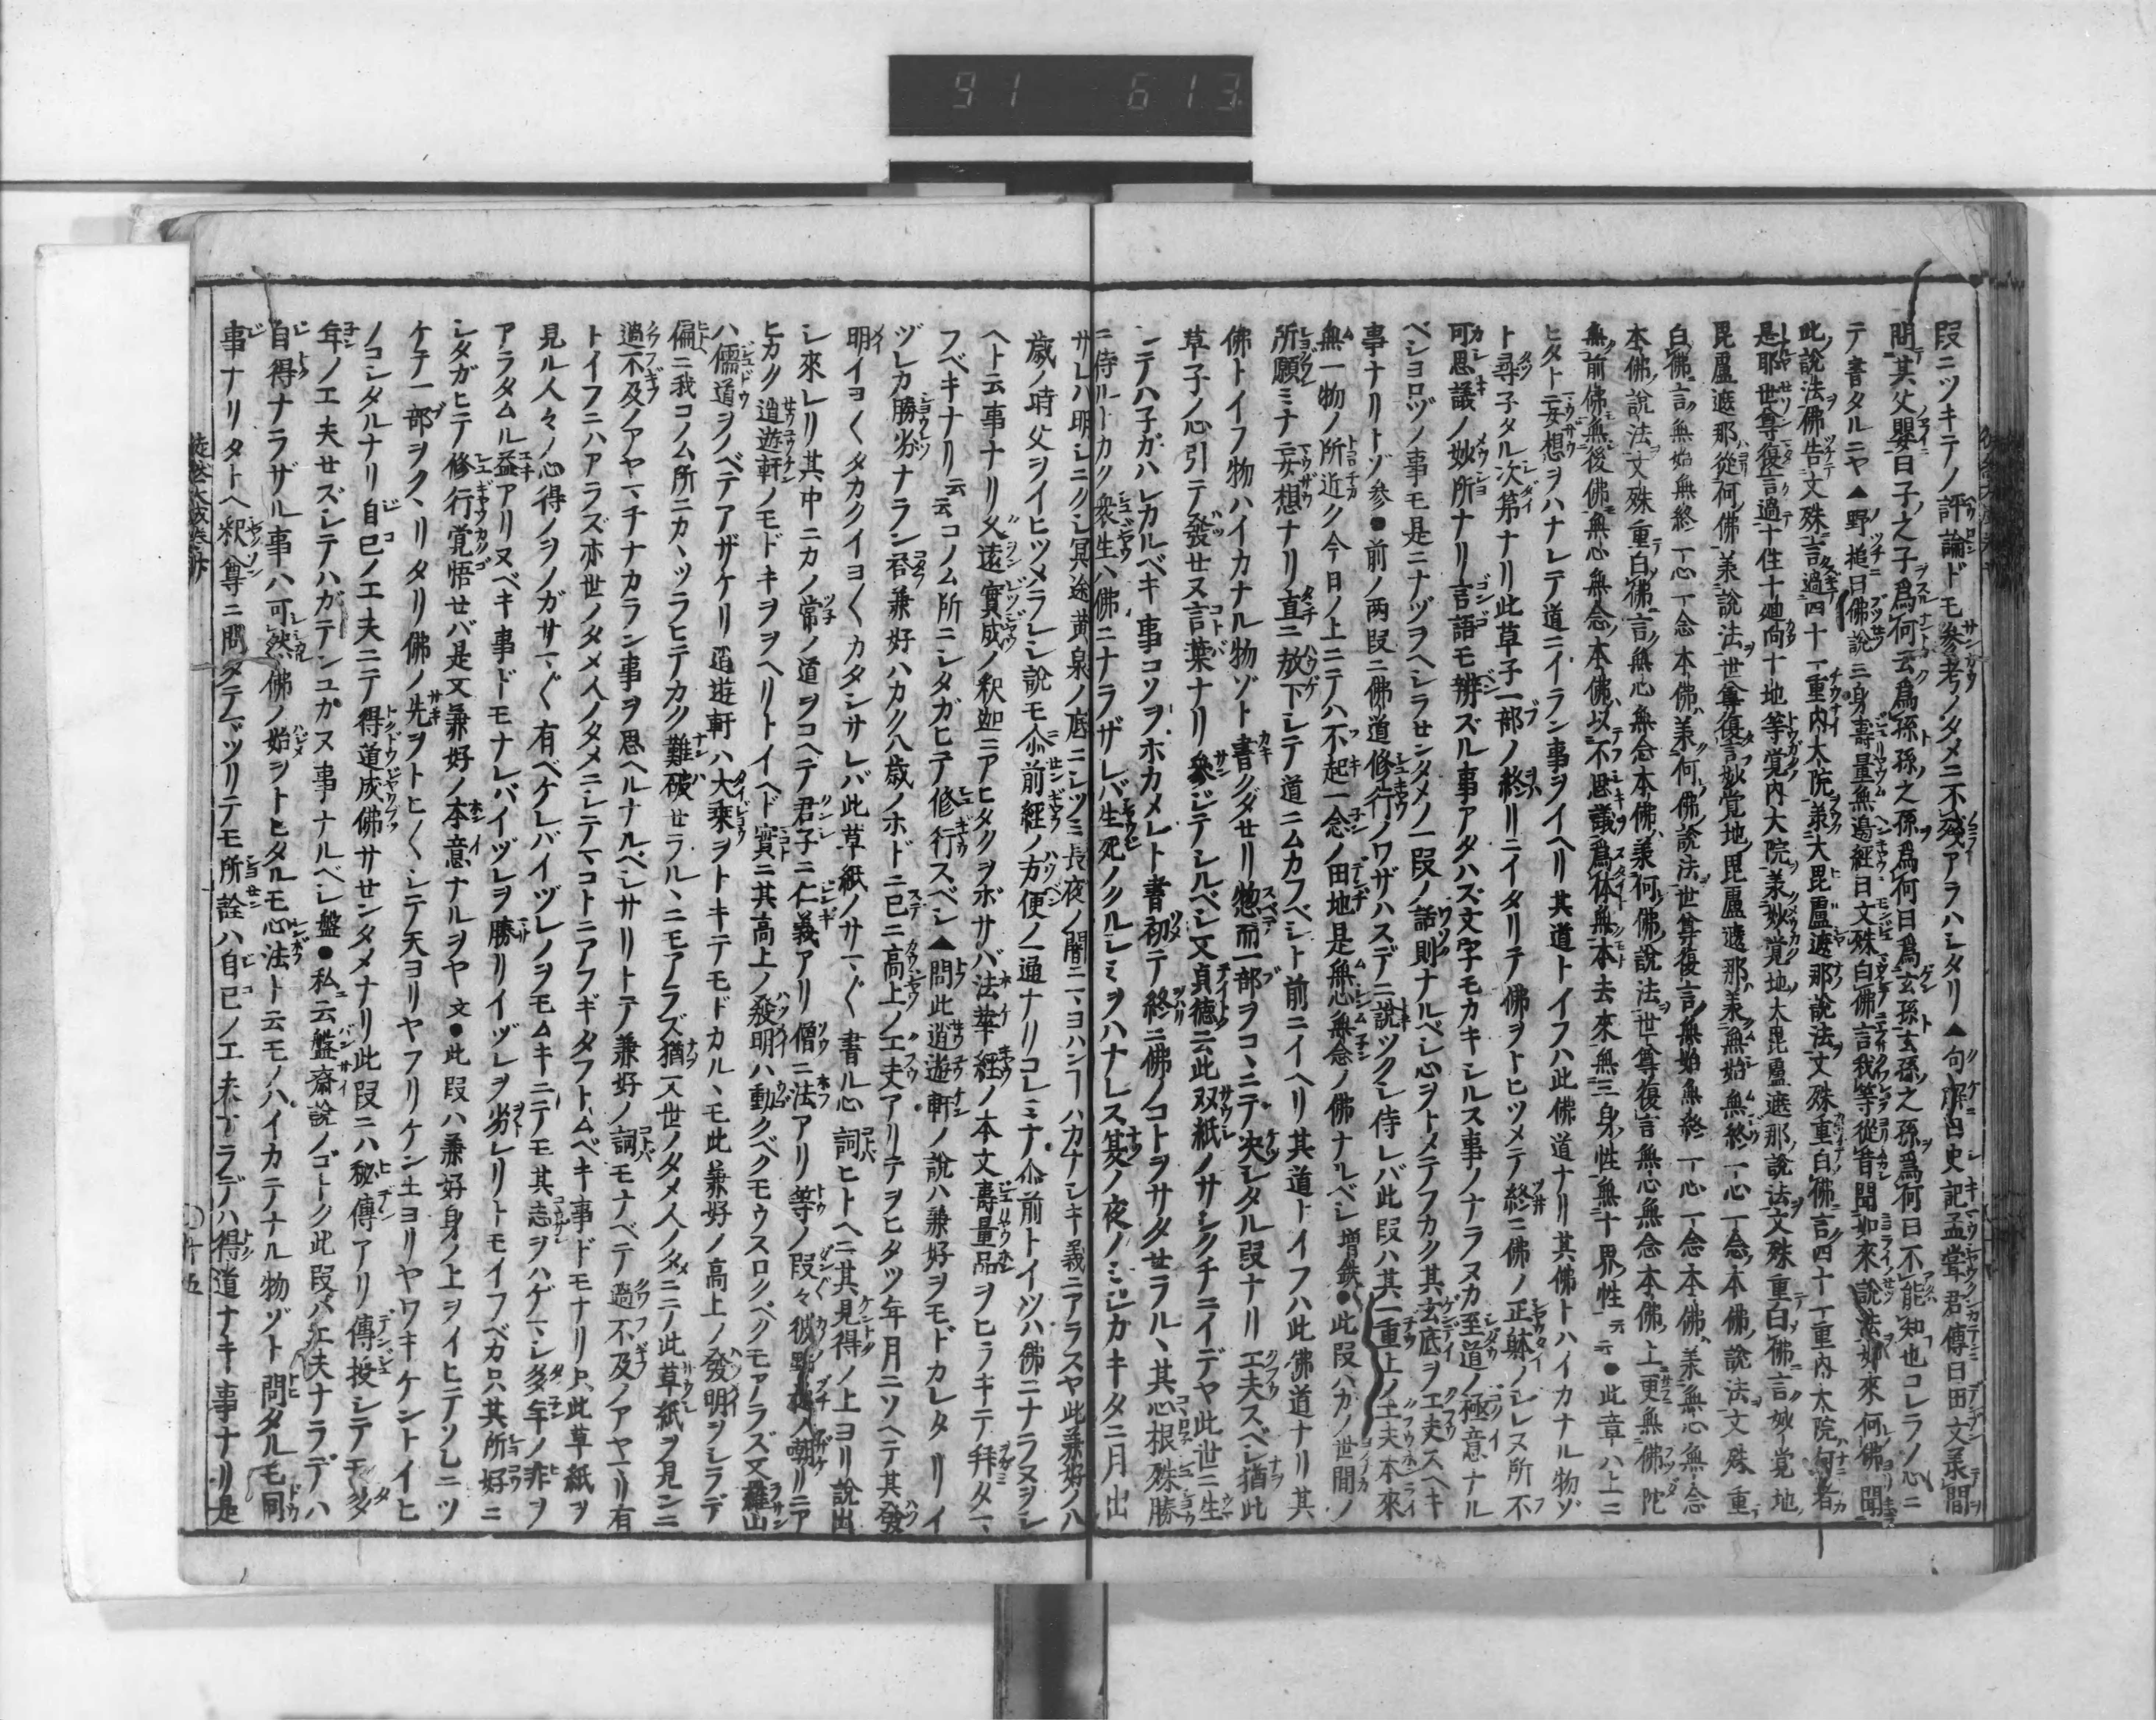 91 613
段ニツキテノ評論ドモ參考ノタメニ不殘アラハシタリ▲句解曰史記孟甞君傳曰田文承間
問其父嬰曰子之子爲何云爲孫孫之孫爲何曰爲玄孫玄孫之孫爲何曰不能知也コレラノ心ニ
テ書タルニヤ▲野槌曰佛說三身壽量無邊經曰文殊白佛言我等從昔聞如來說法如來何佛聞
此說法佛告文殊言過四十一重内大院㐧三大毘盧遮那說法文殊重白佛言四十一重内大院何者
是耶世尊復言過十住十廻向十地等覚内大院㐧妙覚地大毘盧遮那說法文殊重白佛言妙覚地
毘盧遮那從何佛㐧說法世尊復言妙覚地毘盧遮那㐧無始無終一心一念本佛說法文殊重
白佛言無始無終一心一念本佛㐧何佛說法世尊復言無始無終一心一念本佛㐧無心無念
本佛說法文殊重白佛言無心無念本佛㐧何佛說法世尊復言無心無念本佛上更無佛陀
無前佛無後佛無心無念本佛以不思議爲体無本去來無三身性無十界性云云●此章ハ上ニ
ヒタト妄想ヲハナレテ道ニイラン事ヲイヘリ其道トイフハ此佛道ナリ其佛トハイカナル物ゾ
ト尋子タル次第ナリ此草子一部ノ終リニイタリテ佛ヲトヒツメテ終ニ佛ノ正躰ノシレヌ所不
可思議ノ妙所ナリ言語モ辨ズル事アタハズ文字モカキシルス事ノナラヌカ至道ノ極意ナル
ベシヨロヅノ事モ是ニナゾヲヘシラセンタメノ一段ノ話則ナルベシ心ヲトメテフカク其玄底ヲ工夫スヘキ
事ナリトゾ参●前ノ両段ニ佛道修行ノワザハスデニ說ツクシ侍レバ此段ハ其一重上ノ工夫本來
無一物ノ所近ク今日ノ上ニテハ不起一念ノ田地是無心無念ノ佛ナルベシ増鉄●此段ハカノ世間ノ
所願ミナ妄想ナリ直ニ放下シテ道ニムカフベシト前ニイヘリ其道トイフハ此佛道ナリ其
佛トイフ物ハイカナル物ゾト書クダセリ惣而一部ヲコヽニテ决シタル段ナリ工夫スベシ猶此
草子ノ心引テ發せヌ言葉ナリ參ジテシルベシ文貞徳云此双紙ノサシクチニイデヤ此世ニ生
レテハ子ガハレカルベキ事コソヲホカメレト書初テ終ニ佛ノコトヲサタせラルヽ其心根殊勝
ニ侍ルトカク衆生ハ佛ニナラザレバ生死ノクルシミヲハナレス夏ノ夜ノミジカキタニ月出
サレハ明シニクシ冥途黄泉ノ底ニシツミ長夜ノ闇ニマヨハンハカナシキ義ニアラスヤ此兼好ノ八
歳ノ時父ヲイヒツメラレシ說モ尒前経ノ方便ノ一通ナリコレミナ尒前トイツハ佛ニナラヌヲシ
ヘト云事ナリ久遠實成ノ釈迦ニアヒタクヲボサバ法華経ノ本文壽量品ヲヒラキテ拜タマ
フベキナリ云云コノム所ニシタガヒテ修行スベシ▲問此逍遊軒ノ說ハ兼好ヲモドカレタリイ
ヅレカ勝劣ナラン荅兼好ハカク八歳ノホドニ已ニ高上ノ工夫アリテヲヒタツ年月ニソヘテ其發
明イヨ〱タカクイヨ〱カタシサレバ此草紙ノサマ〲書ル心詞ヒトヘニ其見得ノ上ヨリ說出
シ來レリ其中ニカノ常ノ道ヲコヘテ君子ニ仁義アリ僧ニ法アリ等ノ段々彼野槌ノ嘲リニア
ヒカク逍遊軒ノモドキヲヲヘリトイヘド實ニ其高上ノ發明ハ動クベクモウスロクベクモアラズ又羅山
ハ儒道ヲノベテアザケリ逍遊軒ハ大乗ヲトキテモドカルヽモ此兼好ノ高上ノ發明ヲシラデ
偏ニ我コノム所ニカヽツラヒテカク難破せラルヽニモアラズ猶又世ノタメ人ノタメニノ此草紙ヲ見ンニ
過不及ノアヤマチナカラン事ヲ思ヘルナルベシサリトテ兼好ノ詞モナベテ過不及ノアヤマリ有
トイフニハアラズ亦世ノタメ人ノタメニシテマコトニアフギタフトムベキ事ドモナリ只此草紙ヲ
見ル人々ノ心得ノヲノガサマ〲有ベケレバイヅレノヲモムキニテモ其志ヲハゲマシ多年ノ非ヲ
アラタムル益アリヌベキ事ドモナレバイヅレヲ勝リイヅレヲ劣レリトモイフベカラス只其所好ニ
シタガヒテ修行覚悟せバ是又兼好ノ本意ナルヲヤ文●此段ハ兼好身ノ上ヲイヒテソレニツ
ケテ一部ヲクヽリタリ佛ノ先ヲトヒ〱シテ天ヨリヤフリケン土ヨリヤワキケントイヒ
ノコシタルナリ自己ノ工夫ニテ得道成佛サせンタメナリ此段ニハ秘傳アリ傳授シテモ多
年ノ工夫せズシテハガテンユカヌ事ナルベシ盤●私云盤齋說ノゴトク此段ハ工夫ナラデハ
自得ナラザル事ハ可然佛ノ始ヲトヒタルモ心法ト云モノハイカテナル物ゾト問タルモ同
事ナリタトヘ釈尊ニ問タテマツリテモ所詮ハ自己ノ工夫ナラデハ得道ナキ事ナリ是